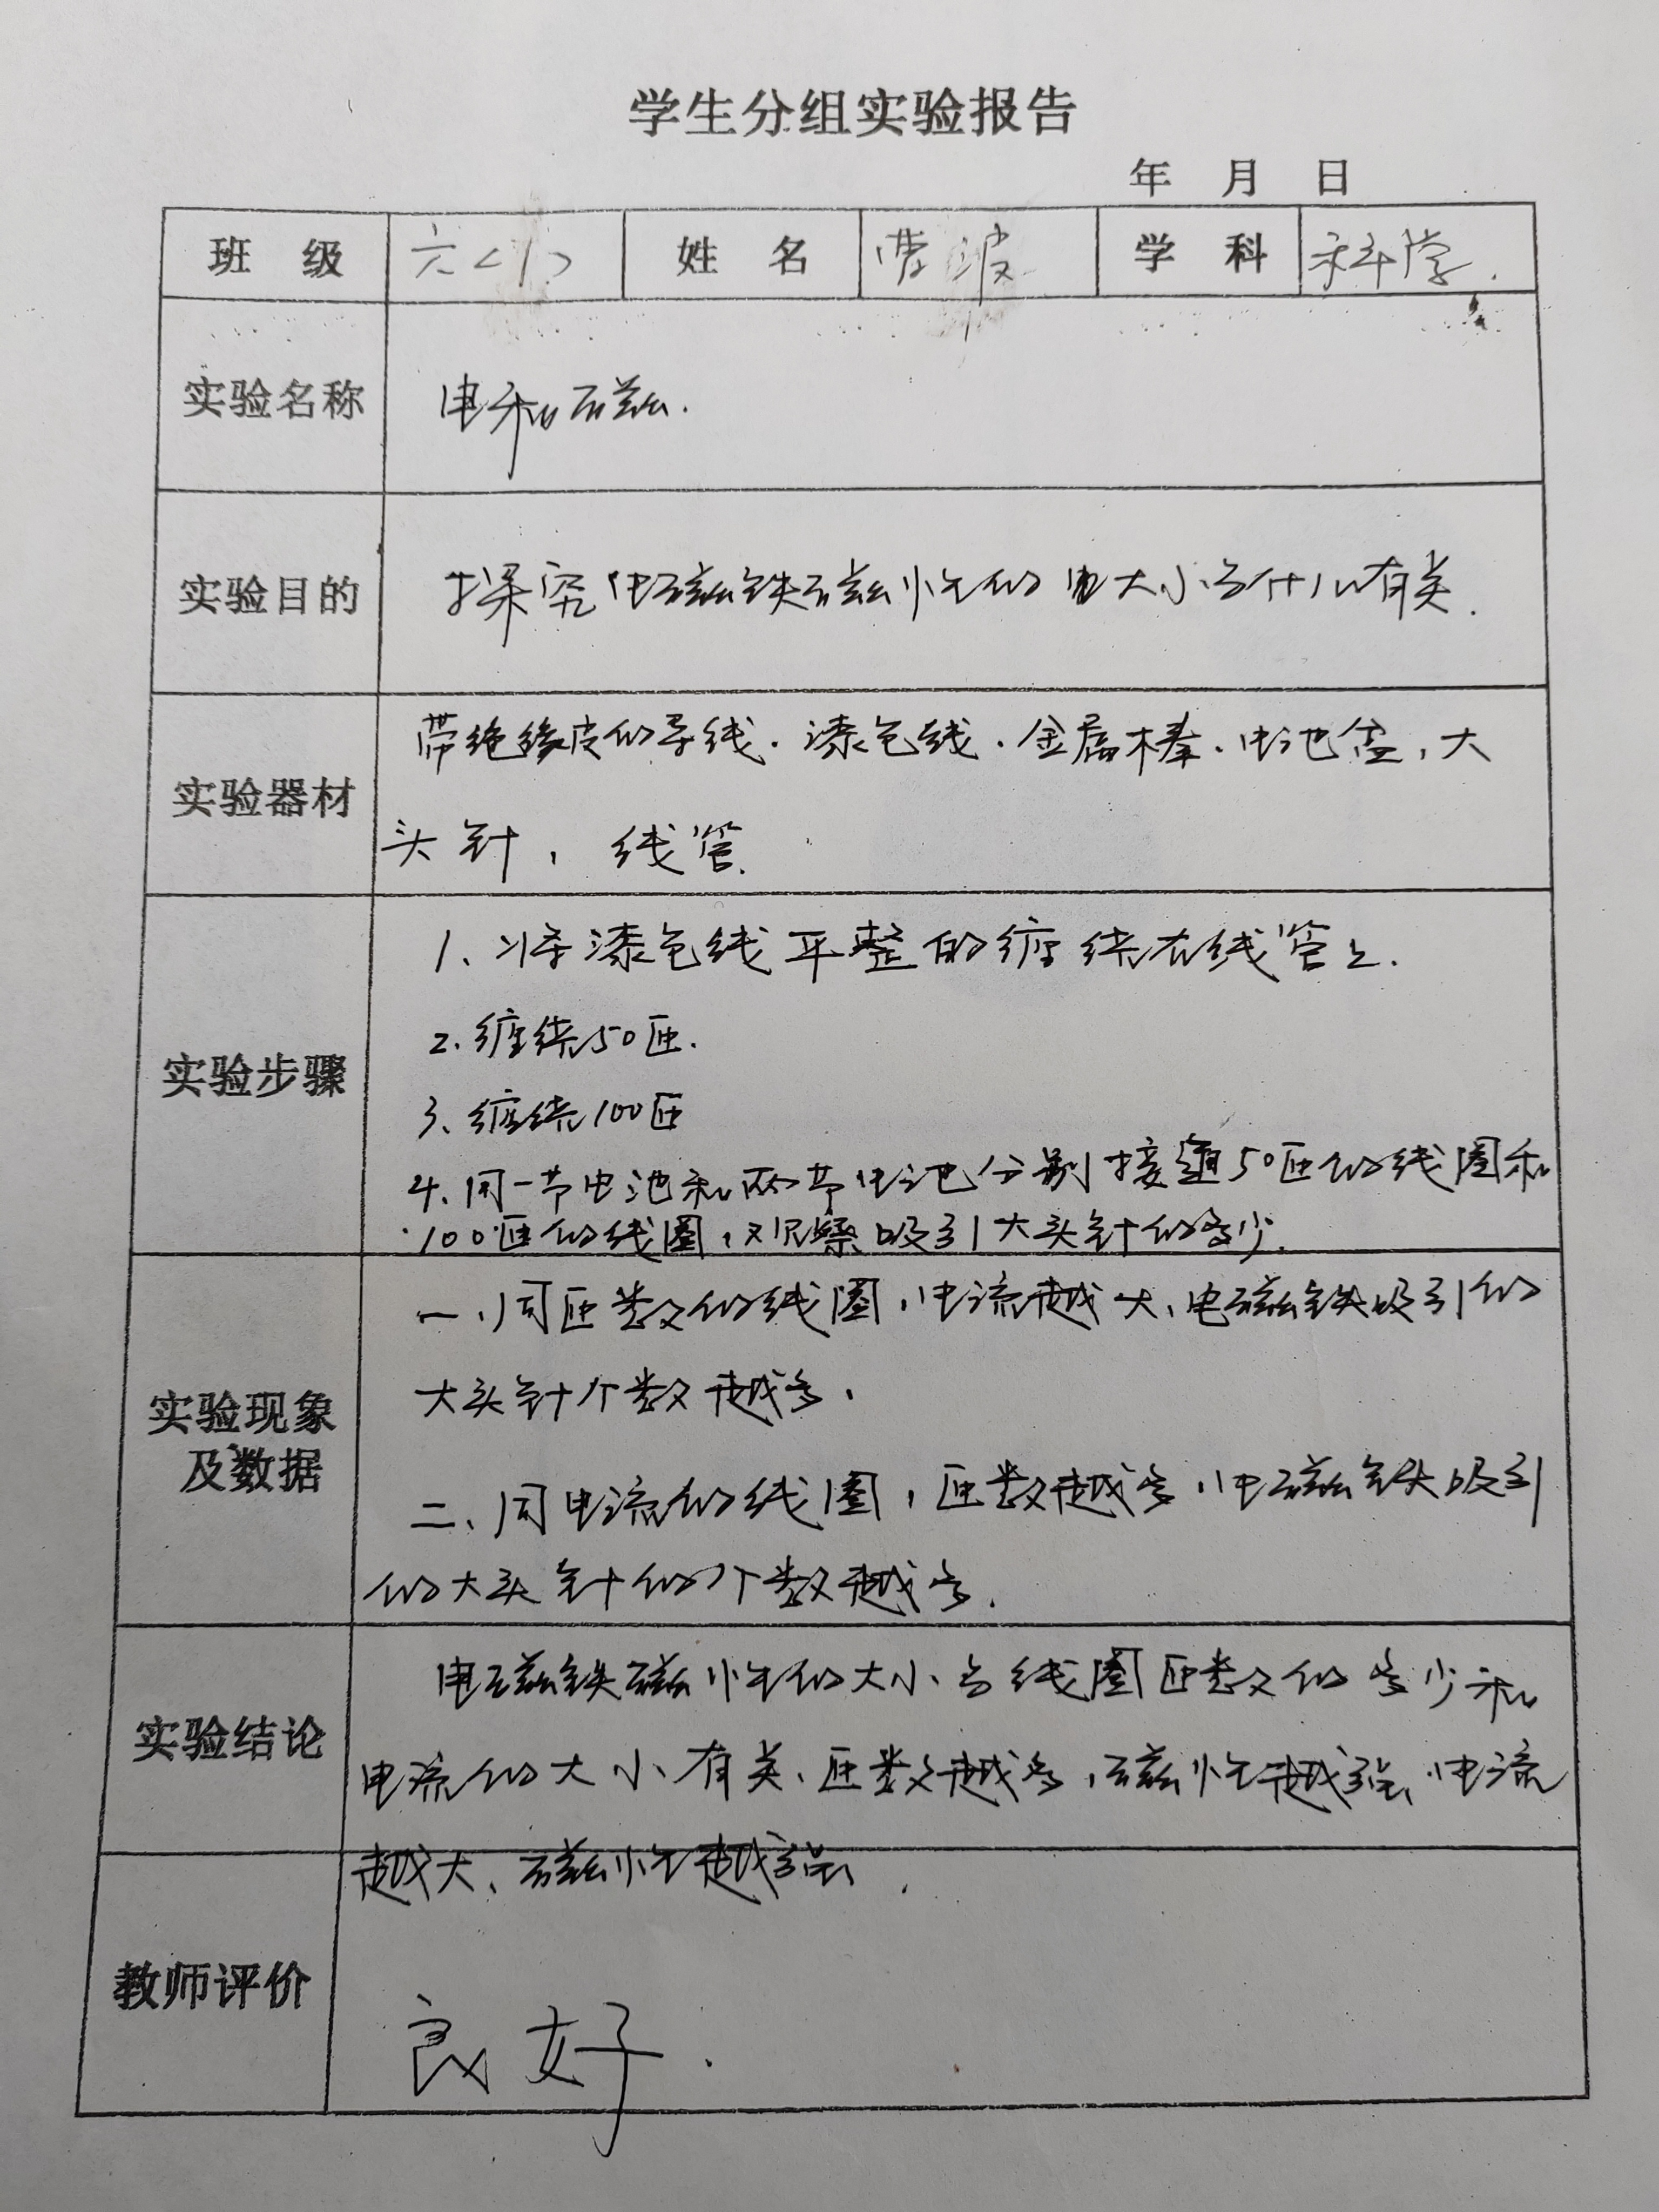 学生分组实验报告
年 月 日
班 级 六<1> 姓 名 曹波 学 科 科学.
实验名称 电和磁.
实验目的 探究电磁铁磁性的 大小与什么有关.
实验器材 带绝缘皮的导线.漆包线.金属棒.电池盒,大
头针, 线管.
实验步骤 1、将漆包线平整的缠绕在线管上.
2.缠绕50匝.
3、缠绕100匝
4.用一节电池和两节电池分别接通50匝的线圈和
100匝的线圈,观察吸引大头针的多少.
实验现象
及数据
一、同匝数的线圈,电流越大、电磁铁吸引的
大头针个数越多.
二、同电流的线圈,匝数越多,电磁铁吸引
的大头针的个数越多.
实验结论 电磁铁磁性的大小、与线圈匝数的多少和
电流的大小有关、匝数越多,磁性越强、电流
越大、磁性越强.
教师评价 良好.